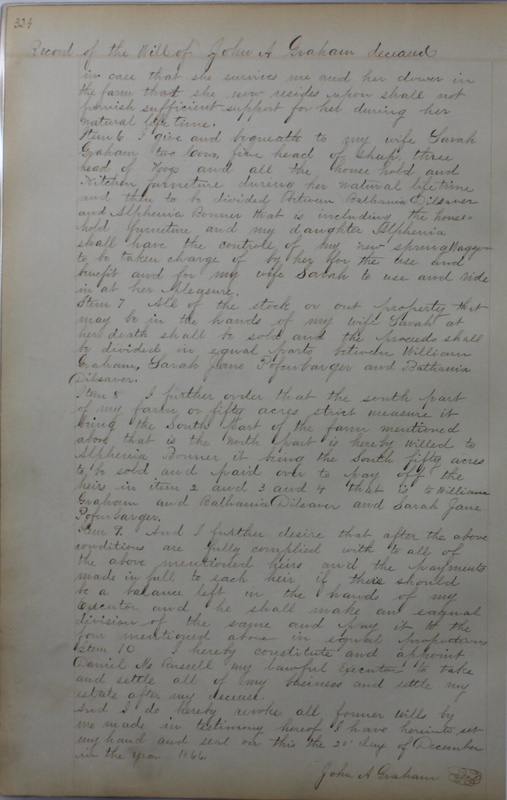 324
Record of the Will of John A Graham deceased
in case that she survives me and her dower in
the farm that she now resides upon shall not
furnish sufficient support for her during her
natural life time.
Item 6 I give and bequeath to my wife Sarah
Graham two Cows, five head of Sheep, three
head of Hogs and all the house hold and
Kitchen furneture during her natural life time
and then to be divided between Bathania Dilsaver
and Alphenia Bonner that is including the house=
hold furneture and my daughter Alphenia
shall have the controle of my new spring Waggon
to be taken charge of by her for the use and
benefit and for my wife Sarah to use and ride
in at her Pleasure.
Item 7 All of the stock or out property that
may be in the hands of my wife Sarah at
her death shall be sold and the proceeds shall
be divided in equal parts between William
Graham, Sarah Jane Pofenbarger and Bathania
Dilsaver.
Item 8 I further order that the south part
of my farm or fifty acres strict measure it
being the South part of the farm mentioned
above that is the north part is hereby willed to
Alphenia Bonner it being the South fifty acres
to be sold and paid over to pay off the
heirs in item 2 and 3 and 4 that is to William
Graham and Bathania Dilsaver and Sarah Jane
Pofenbarger.
Item 9. And I further desire that after the above
conditions are fully complied with to all of
the above mentioned heirs and the payments
made in full to each heir if there should
be a balance left in the hands of my
Executor and he shall make an eaqual
division of the same and pay it to the
four mentioned above in equal proportions
Item 10 I hereby constitute and appoint
Daniel Mc Parsell my lawful Executor to take
and settle all of my business and settle my
estate after my decease.
And I do hereby revoke all former wills by
me made in testimony hereof I have hereunto set
my hand and seal on this the 20 day of December
in the year 1866
John A Graham